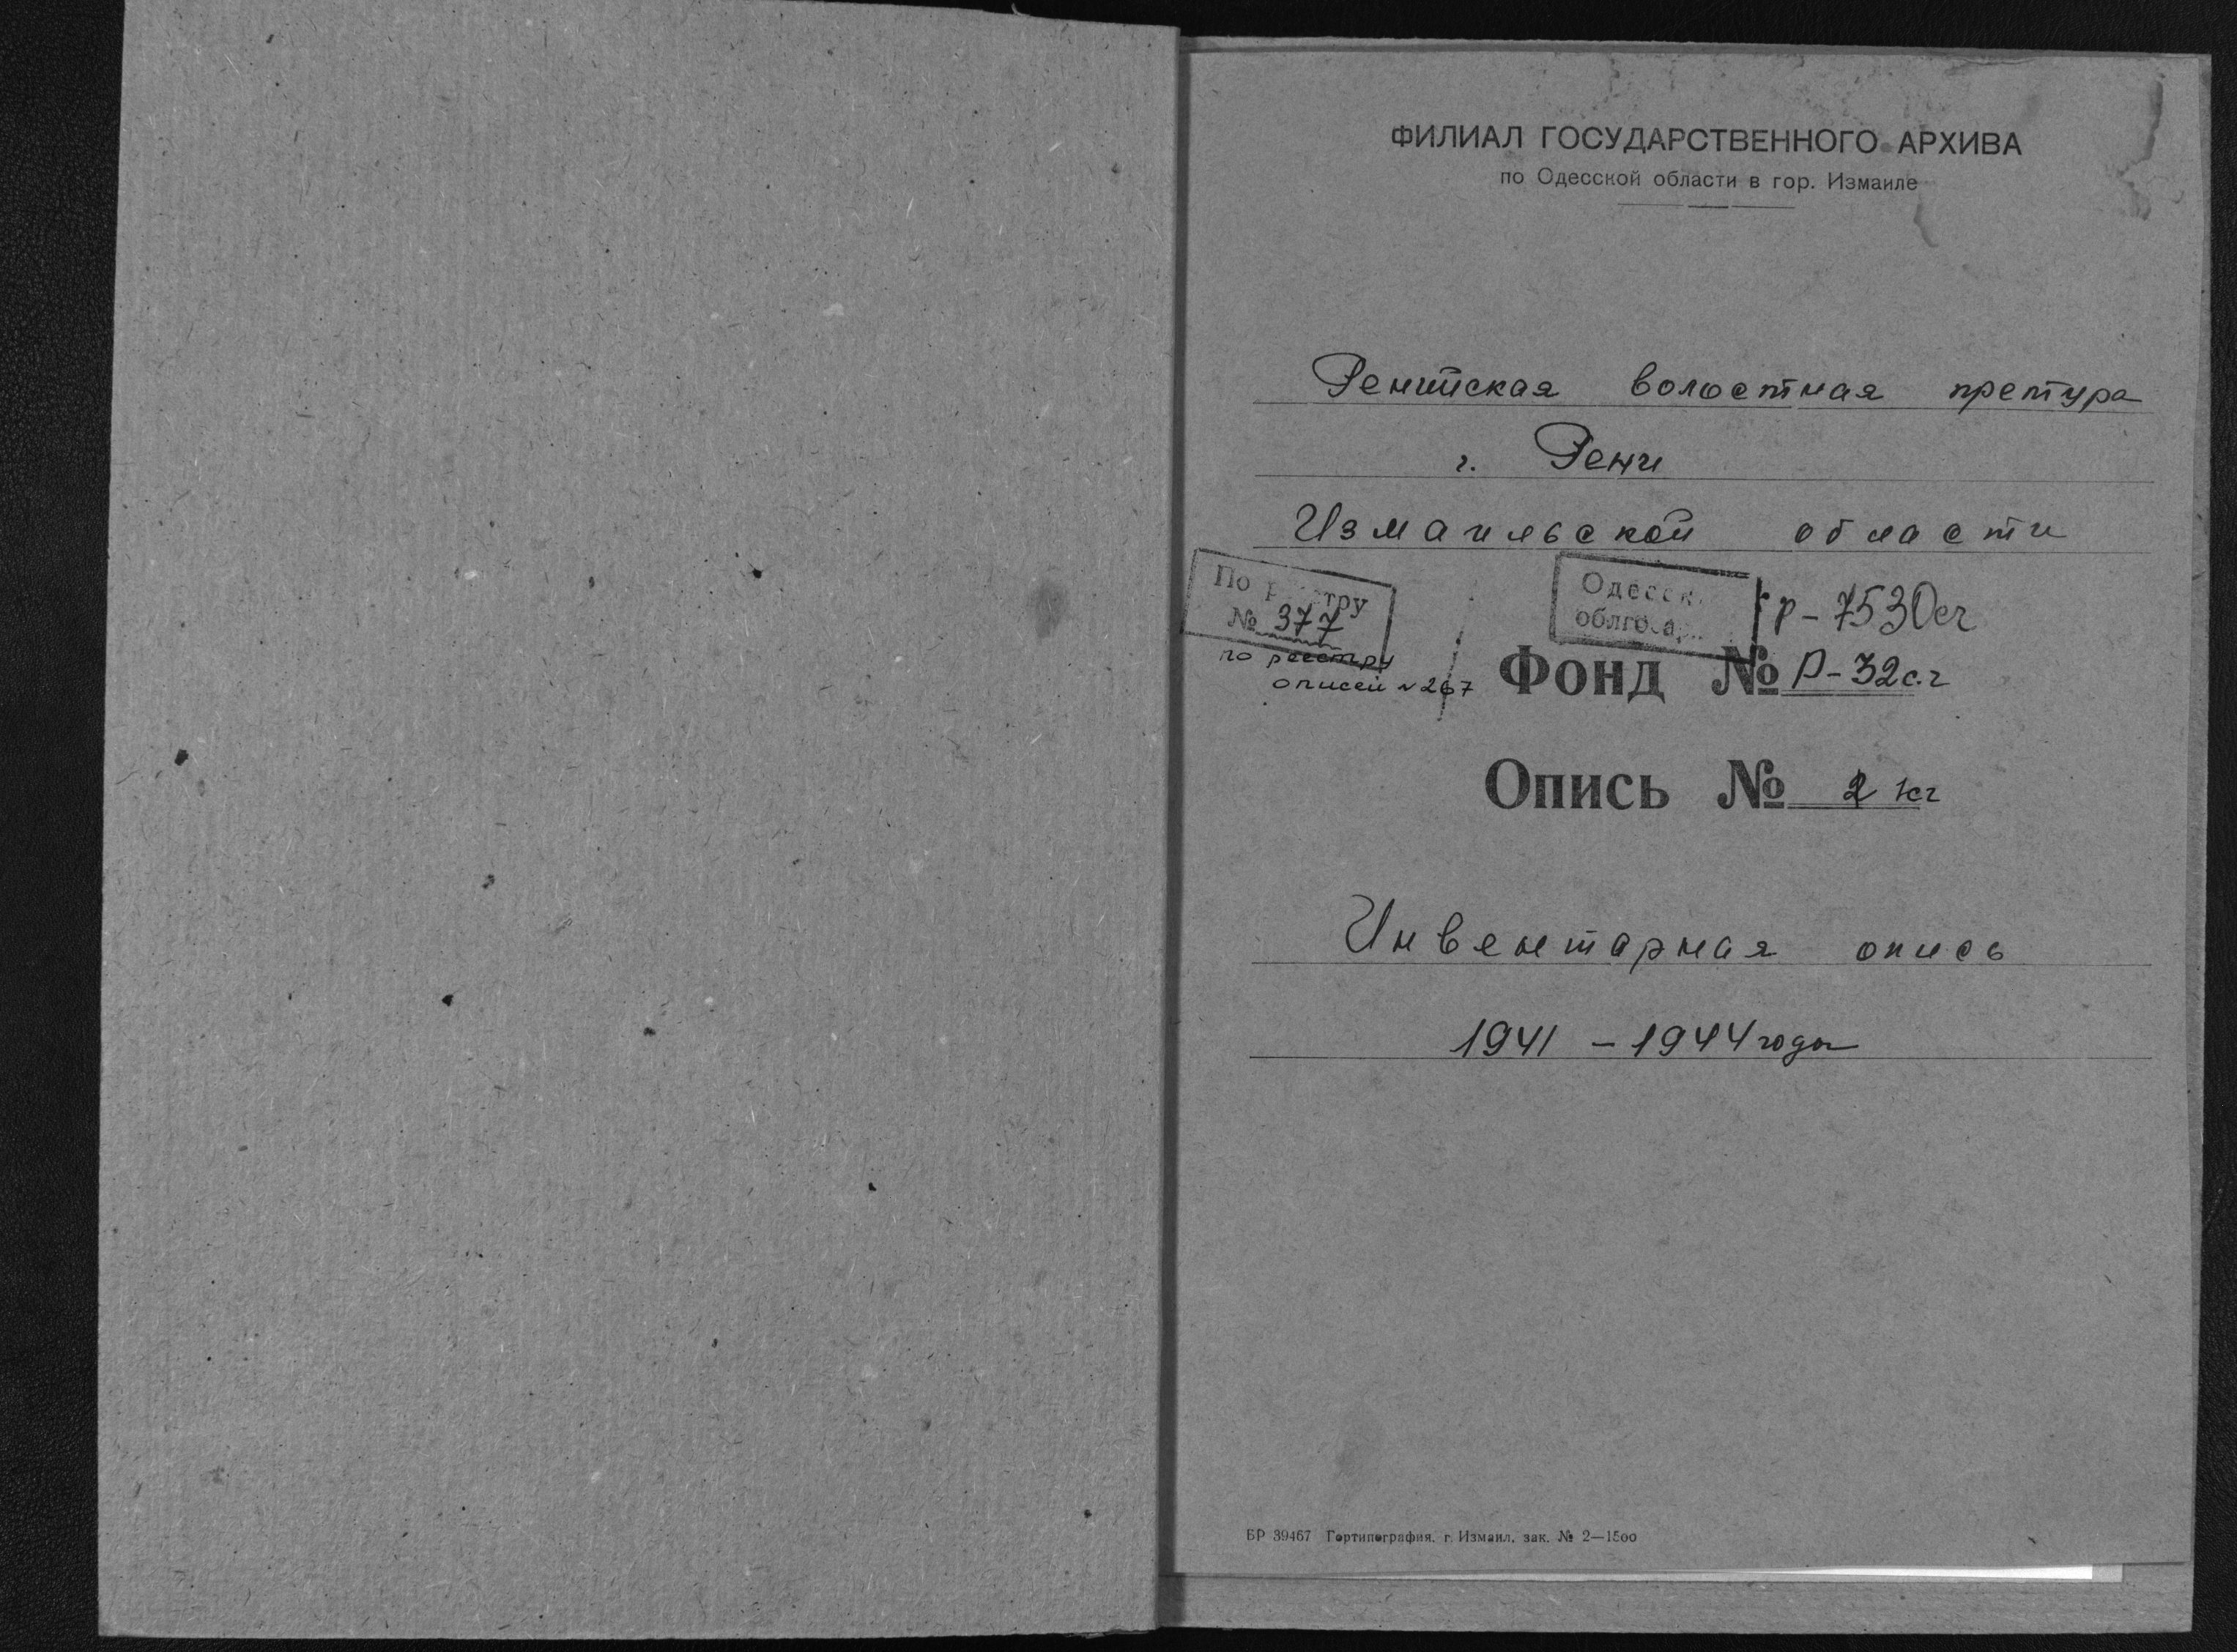 ФИЛИАЛ ГОСУДАРСТВЕННОГО АРХИВА
по Одесской области в гор. Измаиле
Ренийская волостная претура
г. Рени
Измаильской области
По
№ 377
по реестру
описей N 267
Р-7530сч
Фонд № Р-32с.ч
Опись № 2
Инвентарная опись
1941 – 1944 годы
БР 39467 Гортипография. г. Измаил, зак. № 2—1500